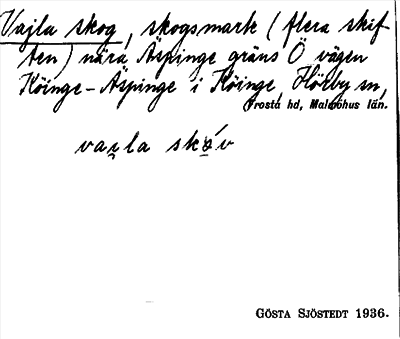 Vajla skog, skogsmark (flera skif
ten) nära Äspinge gräns Ö vägen
Köinge-Äspinge i Köinge, Hörby sn,
Frosta hd, Malmöhus län.
vai̯la skǻv
GÖSTA SJÖSTEDT 1936.